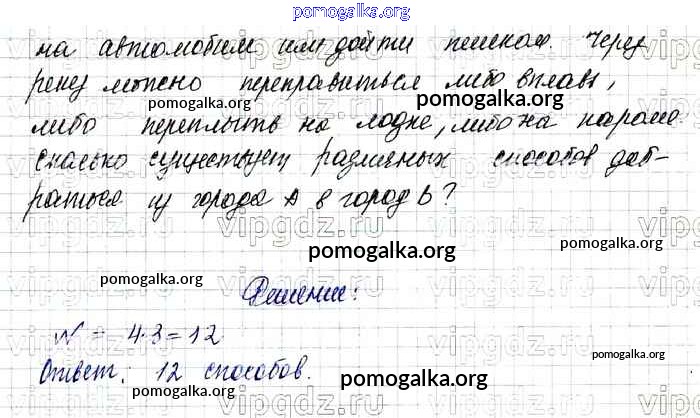 pomogalka.org
на автомобили или дойти пешком. Через
реку можно переправиться либо вплавь,
pomogalka.org pomogalka.org
либо переплыть на лодке, либо на пароме
сколько существует различных способов доб-
раться из города А в город В?
pomogalka.org
pomogalka.org
Решение:
N = 4·3=12
pomogalka.org
Ответ: 12 способов.
pomogalka.org
pomogalka.org